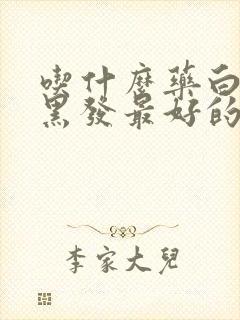 喫什麼藥白
黑發最好的
李家大兒